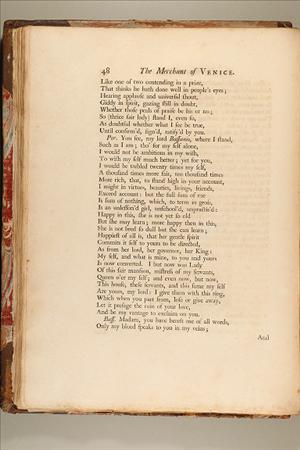 48 The Merchant of VENICE.
Like one of two contending in a prize,
That thinks he hath done well in people's eyes;
Hearing applause and universal shout,
Giddy in spirit, gazing still in doubt,
Whether those peals of praise be his or no;
So (thrice fair lady) stand I, even so,
As doubtful whether what I see be true,
Until confirm'd, sign'd, ratify'd by you.
Por. You see, my lord Bassanio, where I stand,
Such as I am; tho' for my self alone,
I would not be ambitious in my wish,
To wish my self much better; yet for you,
I would be trebled twenty times my self,
A thousand times more fair, ten thousand times
More rich, that, to stand high in your account,
I might in virtues, beauties, livings, friends,
Exceed account: but the full sum of me
Is sum of nothing, which, to term in gross,
Is an unlesson'd girl, unschool'd, unpractis'd:
Happy in this, she is not yet so old
But she may learn; more happy then in this,
She is not bred so dull but she can learn;
Happiest of all is, that her gentle spirit
Commits it self to yours to be directed,
As from her lord, her governor, her King:
My self, and what is mine, to you and yours
Is now converted. I but now was Lady
Of this fair mansion, mistress of my servants,
Queen o'er my self; and even now, but now,
This house, these servants, and this same my self
Are yours, my lord: I give them with this ring,
Which when you part from, lose or give away,
Let it presage the ruin of your love,
And be my vantage to exclaim on you.
Bass. Madam, you have bereft me of all words,
Only my blood speaks to you in my veins;
And